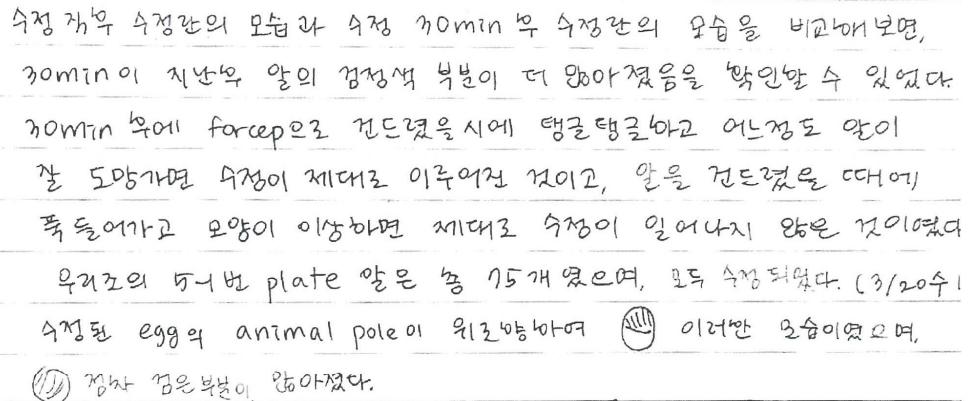 수정 직후 수정란의 모습과 수정 30min 후 수정란의 모습을 비교해보면,
30min이 지난후 알의 검정색 부분이 더 많아졌음을 확인할 수 있었다.
30min 후에 forcep으로 건드렸을시에 탱글탱글하고 어느정도 알이
잘 도망가면 수정이 제대로 이루어진 것이고, 알을 건드렸을 때에
푹 들어가고 모양이 이상하면 제대로 수정이 일어나지 않은 것이였다
우리조의 5-1번 plate 알은 총 75개였으며, 모두 수정되었다. (3/20수
수정된 egg의 animal pole이 위로향하여 이러한 모습이였으며,
점차 검은부분이 많아졌다.